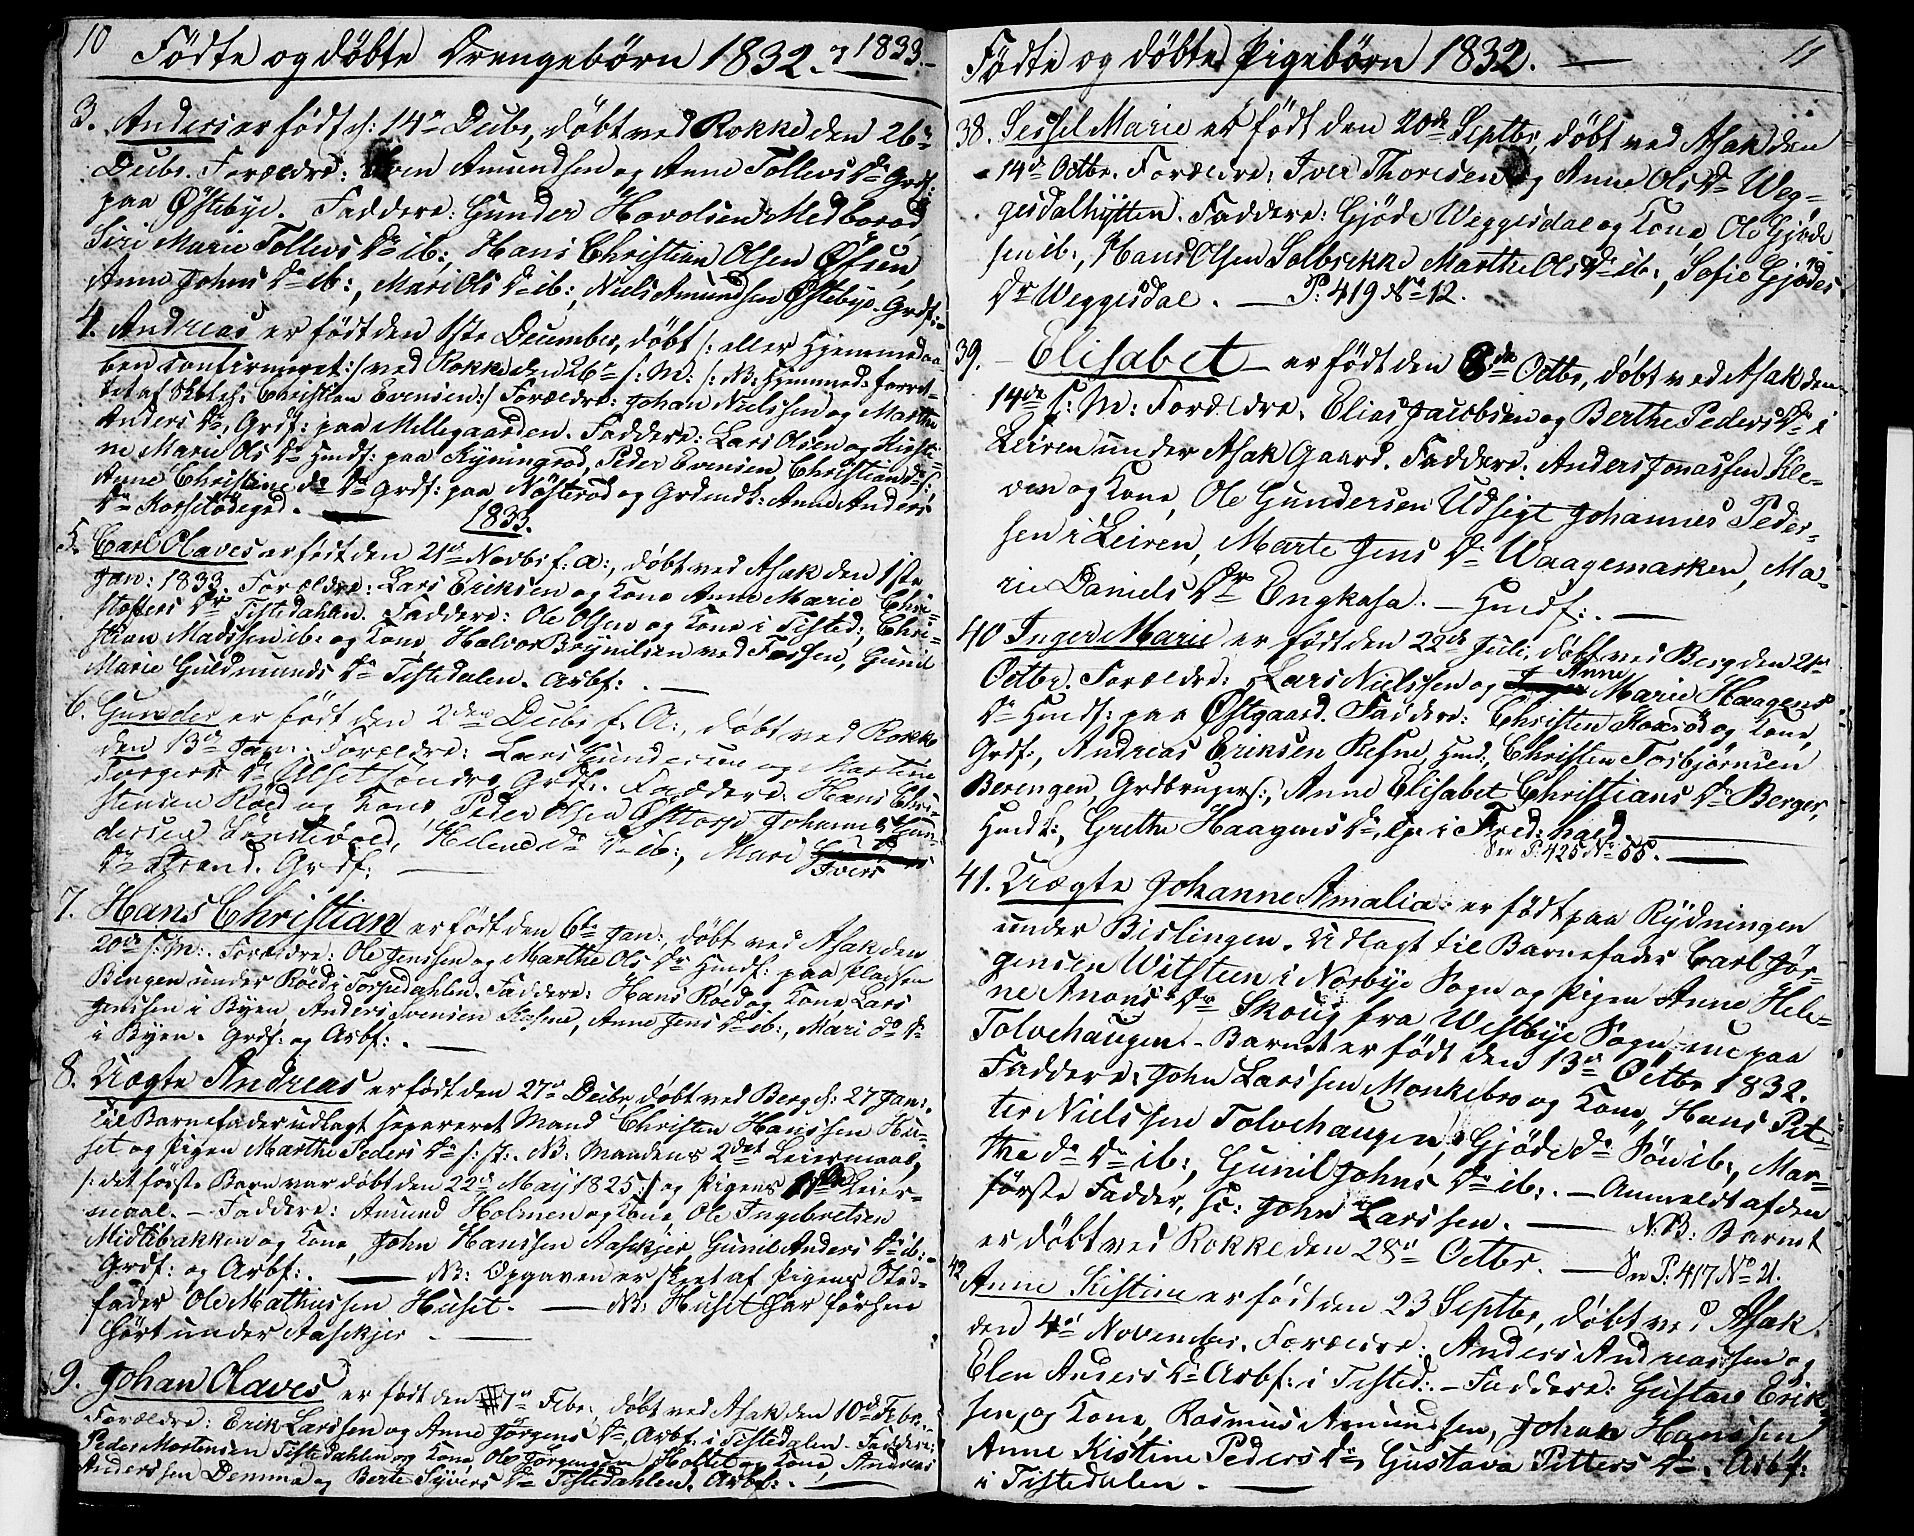 10 Födte og döbte Drengebörn 1832. & 1833.
3. Anders er födt d: 14de Decbr, döbt ved Rokke den 26de
Decbr. Forældre: Amundsen og Anne Tollevs Dr Grdf:
paa Östebye. Faddere: Gunder Hovelsen Medboröd
Siri Marie Tollevs Dr ib:, Hans Christian Olsen
Anne Johns Dr ib:, Mari Ols Dr ib:, Niels Amundsen Östebye. Grdf:
4. Andreas er födt den 1ste December, döbt /: eller Hjemmedaa-
ben confirmeret :/ ved Rokke den 26de s: M: /: NB: Hjemmed: forret-
tet af Christen Evensen :/ Forældre: Johan Nielssen og Marthe
Anders Dr, Grdf: paa Millegaarden. Faddere: Lars Olsen og Kirsti-
ne Marie Ols Dr Hmdf: paa Rysningröd, Peder Evensen, Christian do
Anne Christine do Dr Grdf: paa Nösteröd og Anne Anders
Dr Korsetödegrd.
1833.
5. Carl Olaves er födt den 21de Novbr f: a:, döbt ved Asak den 1ste
Jan: 1833. Forældre: Lars Eriksen og Kone Anne Marie Chri-
stoffers Dr Tistedahlen. Faddere: Ole Olsen og Kone i Tisted:, Chri-
stian Madssen ib: og Kone, Halvor Brynilsen ved Fossen, Gunil
Marie Guldmunds Dr Tistedalen. Arbf:.
6. Gunder er födt den 2den Decbr f: A:, döbt ved Rokke
den 13de Jan: Forældre: Lars Gundersen og Martine
Torgers Dr Ulset söndre, Grdf:. Faddere: Hans Chri-
stensen Röed og Kone, Peder Olsen Östtorp Johannes Gun-
dersen Lenstevold, Helene do Dr ib:, Mari
Ivers
Dr Strand. Grdf:
7. Hans Christian er födt den 6te Jan:, döbt ved Asak den
20de s: M: Forældre: Ole Jenssen og Marthe Ols Dr Hmdf: paa Pladsen
Bingen under Röed i Torpedahlen. Faddere: Hans Röed og Kone, Lars
Jenssen i Byen, Anders Svensen, Anne Jens Dr ib:, Mari do Dr
i Byen. Grdf: og Arbf:.
8. Uægte Andreas er födt den 27de Decbr, döbt ved Berg d: 27 Jan:.
Til Barnefader udlagt separeret Mand Christen Hanssen Hu-
set og Pigen Marthe Peders Dr s: st:. NB: Mandens 2det Leiermaal,
/: det förste Barn var döbt den 22de Maij 1825 :/ og Pigens Leier-
maal. - Faddere: Amund Holmen og Kone, Ole Ingebretsen
Midtibakken og Kone, John Hanssen Aasekjer, Gunil Anders Dr ib:
Grdf: og Arbf:. NB: Opgaven er skeet af Pigens Sted-
fader Ole Mathiessen Huset. NB: Huset har förhen
hört under Aasekjer
9. Johan Olaves er födt den 7de Febr:, döbt ved Asak den 10de Febr.
Forældre: Erik Larssen og Anne Jörgens Dr, Arbf: i Tistedalen. Faddere:
Peder Mortensen Tistedahlen og Kone, Ole Jörgensen Holtet og Kone, Andreas
Anderssen Demma og Berte Syvers Dr Tistedahlen. Arbf:.
Födte og döbte Pigebörn 1832. 11
38. Sessel Marie er födt den 20de Septbr, döbt ved Asak den
14de Octbr. Forældre: Iver Thoresen og Anne Ols Dr Weg-
gesdalhytten. Faddere: Gjöde Weggesdal og Kone, Ole Gjöde
sen ib:, Hans Olsen Solbrekke Marthe Ols Dr ib:, Sofie Gjödes
Dr Weggesdal. P: 419 No 12.
39. Elisabet er födt den 8de Octbr, döbt ved Asak den
14de s: M: Forældre: Elias Jacobsen og Berthe Peders Dr i
Leiren under Asak Gaard. Faddere: Anders Jonassen Kle-
ven og Kone, Ole Gundersen Udsigt Johannes Peder-
sen i Leiren, Marte Jens Dr Waagemarken, Ma-
rie Daniels Dr Engkasa. - Hmdf:.
40 Inger Marie er födt den 22de Juli, döbt ved Berg den 21de
Octbr. Forældre: Lars Nielssen og Anne Marie Haagens
Dr Hmdf: paa Östgaard. Faddere: Christen og Kone,
Grdf:, Andreas Eriksen Refne, Hmd:, Christen Torbjörnsen
Berengen, Grdbruger:, Anne Elisabet Christians Dr Berger,
Hmdt:, Grethe Haagens Dr, i Fred: hald.
See P: 425 No 55.
41. Uægte Johanne Amalia er födt paa Rydningen
under Bislingen. Udlagt til Barnefader Carl Jör-
gensen Witsteen i Norbye Sogn og Pigen Anne Hele-
ne Anons Dr Skoug fra Westbye Sogn, nu paa
Tolvehaugen. - Barnet er födt den 13de Octbr 1832.
Faddere: John Larssen Monkebro og Kone, Hans Pet-
ter Nielssen Tolvehaugen, Gjöde do Söe ib:, Mar-
the do Dr ib:, Gunil Johns Dr ib:. - Anmeldt af den
förste Fadder, sc: John Larssen. NB: Barnet
er döbt ved Rokke den 28de Octbr. See P: 417 No 21.
42 Anne Kistine er födt den 23 Septbr, döbt ved Asak
den 4de November. Forældre: Anders Andreassen og
Elen Anders Dr Arbf: i Tisted:. - Faddere: Gustav Erik-
sen og Kone, Rasmus Amundsen, Johan Hanssen
Anne Kistine Peders Dr, Gustava Pitters Dr. Arbf:
i Tistedalen.